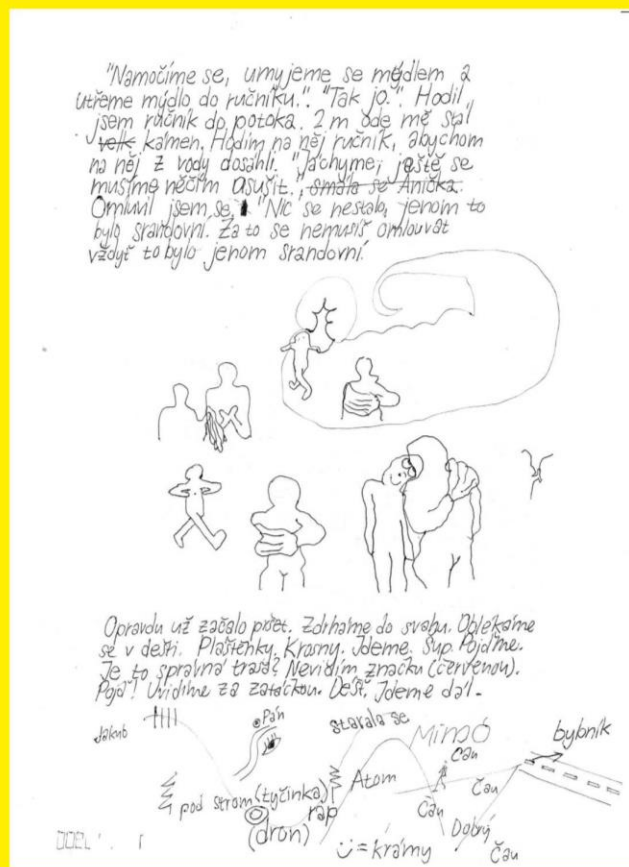 "Namočíme se, umyjeme se mýdlem a
utřeme mýdlo do ručníku.". "Tak jo.". Hodil
jsem ručník do potoka. 2 m ode mě stál
velk kámen. Hodím na něj ručník, abychom
na něj z vody dosáhli. "Jáchyme, ještě se
musíme něčím osušit.", smála se Anička.
Omluvil jsem se. "Nic se nestalo, jenom to
bylo srandovní. Za to se nemusíš omlouvat
vždyť to bylo jenom srandovní.
Opravdu už začalo pršet. Zdrháme do svahu. Oblékáme
se v dešti. Pláštěnky. Krosny. Jdeme. Šup. Pojďme.
Je to správná trasa? Nevidím značku (červenou).
Pojď! Uvidíme za zatáčkou. Déšť. Jdeme dál.
Jakub
Pán
starala se
Mimoó
bybník
pod strom (tyčinka)
ráp
(dron)
Atom
Čau
Čau
Čau
Dobrý
Čau
= krámy